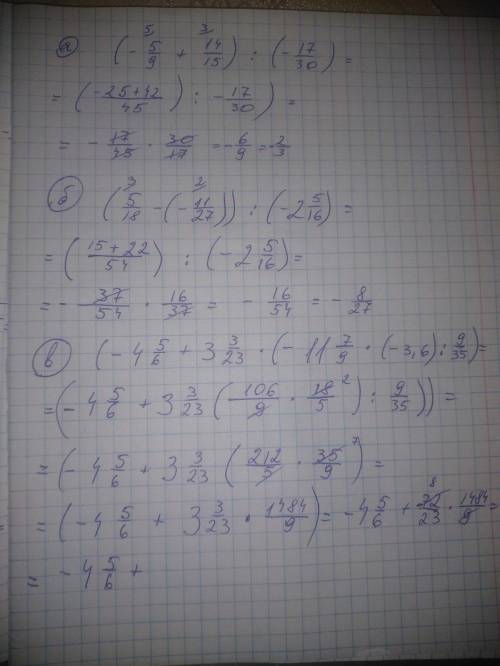 а) (- 5/9 + 14/15) : (- 17/30) =
= (-25+42/45) : - 17/30) =
= - 17/45 · 30/17 = - 6/9 = - 2/3
б) (5/18 - (- 11/27)) : (-2 5/16) =
= (15+22/54) : (-2 5/16) =
= - 37/54 · 16/37 = - 16/54 = - 8/27
в) (-4 5/6 + 3 3/23 · (-11 7/9 · (-3,6) : 9/35) =
= (-4 5/6 + 3 3/23 (106/9 · 18/5) : 9/35)) =
= (-4 5/6 + 3 3/23 (212/5 · 35/9) =
= (-4 5/6 + 3 3/23 · 1484/9) = -4 5/6 + 72/23 · 1484/9 =
= -4 5/6 +